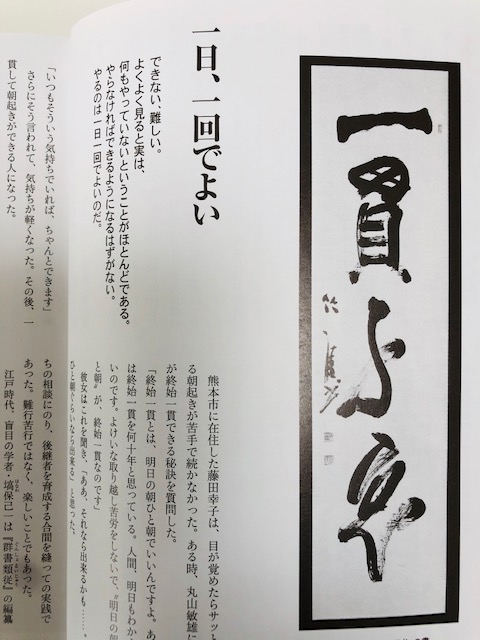 一貫
一日、一回でよい
できない、難しい。
よくよく見ると実は、
何もやっていないということがほとんどである。
やらなければできるようになるはずがない。
やるのは一日一回でよいのだ。
熊本市に在住した藤田幸子は、目が覚めたらサッと
る朝起きが苦手で続かなかった。ある時、丸山敏雄に
が終始一貫できる秘訣を質問した。
「終始一貫とは、明日の朝ひと朝でいいんですよ。あ
は終始一貫を何十年と思っている。人間、明日もわか
いのです。よけいな取り越し苦労をしないで、〝明日の朝
と朝〟が、終始一貫なのです」
彼女はこれを聞き、「ああ、それなら出来るかも……。
ひと朝ぐらいなら出来る」と思った、
「いつもそういう気持ちでいれば、ちゃんとできます」
さらにそう言われて、気持ちが軽くなった。その後、一
貫して朝起きができる人になった。
ちの相談にのり、後継者を育成する合間を縫っての実践で
あった。難行苦行ではなく、楽しいことでもあった。
江戸時代、盲目の学者・塙保己一は『群書類従』の編纂